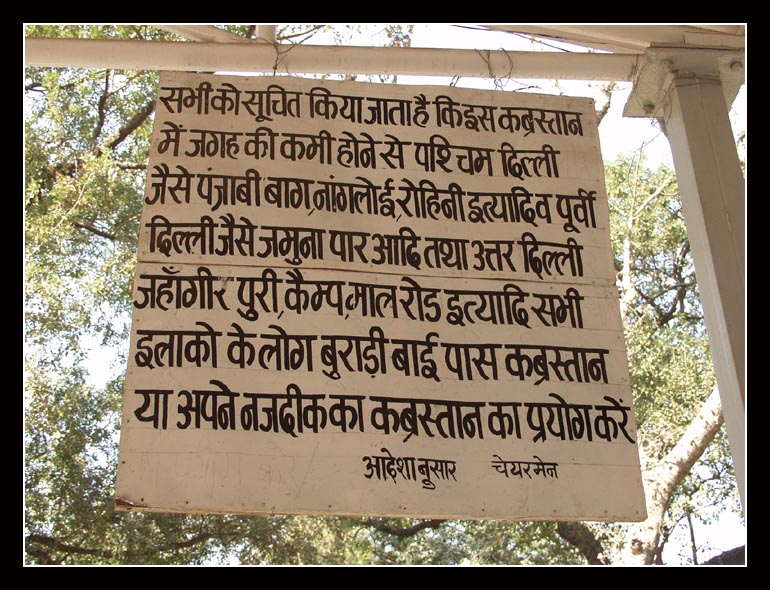 सभी को सूचित किया जाता है कि इस कब्रस्तान
में जगह की कमी होने से पश्चिम दिल्ली
जैसे पंजाबी बाग, नांगलोई, रोहिनी इत्यादि व पूर्वी
दिल्ली जैसे जमुना पार आदि तथा उत्तर दिल्ली
जहाँगीर पुरी, कैम्प, माल रोड इत्यादि सभी
इलाको के लोग बुराड़ी बाई पास कब्रस्तान
या अपने नजदीक का कब्रस्तान का प्रयोग करें
आदेशानूसार चेयरमेन